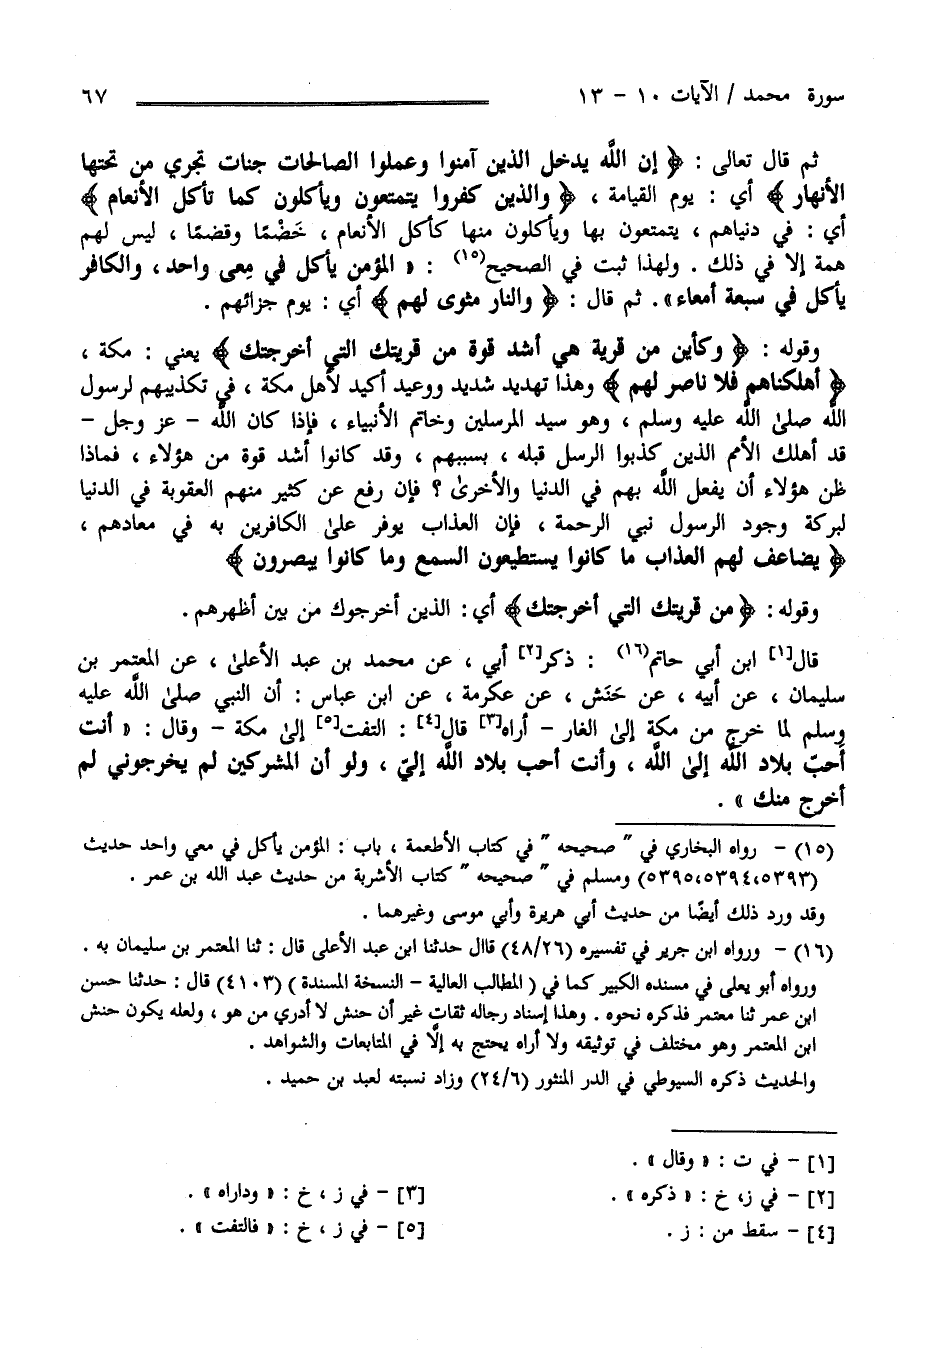 سورة محمد / الآيات ١٠ - ١٣ ٦٧
ثم قال تعالى : ﴿ إن اللَّه يدخل الذين آمنوا وعملوا الصالحات جنات تجري من تحتها
الأنهار ﴾ أي : يوم القيامة ، ﴿ والذين كفروا يتمتعون ويأكلون كما تأكل الأنعام ﴾
أي : في دنياهم ، يتمتعون بها ويأكلون منها كأكل الأنعام ، خَضْمًا وقضمًا ، ليس لهم
همة إلا في ذلك . ولهذا ثبت في الصحيح(١٥) : « المؤمن يأكل في مِعى واحد ، والكافر
يأكل في سبعة أمعاء» . ثم قال : ﴿ والنار مثوى لهم ﴾ أي : يوم جزائهم .
وقوله : ﴿ وكأين من قرية هي أشد قوة من قريتك التي أخرجتك ﴾ يعني : مكة ،
﴿ أهلكناهم فلا ناصر لهم ﴾ وهذا تهديد شديد ووعيد أكيد لأهل مكة ، في تكذيبهم لرسول
اللَّه صلىٰ اللَّه عليه وسلم ، وهو سيد المرسلين وخاتم الأنبياء ، فإذا كان اللَّه - عز وجل -
قد أهلك الأمم الذين كذبوا الرسل قبله ، بسببهم ، وقد كانوا أشد قوة من هؤلاء ، فماذا
ظن هؤلاء أن يفعل اللَّه بهم في الدنيا والأخرىٰ ؟ فإن رفع عن كثير منهم العقوبة في الدنيا
لبركة وجود الرسول نبي الرحمة ، فإن العذاب يوفر علىٰ الكافرين به في معادهم ،
﴿ يضاعف لهم العذاب ما كانوا يستطيعون السمع وما كانوا يبصرون ﴾
وقوله : ﴿من قريتك التي أخرجتك﴾ أي : الذين أخرجوك من بين أظهرهم .
قال[١] ابن أبي حاتم(١٦) : ذكر[٢] أبي ، عن محمد بن عبد الأعلىٰ ، عن المعتمر بن
سليمان ، عن أبيه ، عن حَنَش ، عن عكرمة ، عن ابن عباس : أن النبي صلىٰ اللَّه عليه
وسلم لما خرج من مكة إلىٰ الغار - أراه[٣] قال[٤] : التفت[٥] إلىٰ مكة - وقال : « أنت
أحبّ بلاد اللَّه إلىٰ اللَّه ، وأنت أحب بلاد اللَّه إليّ ، ولو أن المشركين لم يخرجوني لم
أخرج منك » .
(١٥) - رواه البخاري في " صحيحه " في كتاب الأطعمة ، باب : المؤمن يأكل في معي واحد حديث
(٥٣٩٣،٥٣٩٤،٥٣٩٥) ومسلم في " صحيحه " كتاب الأشربة من حديث عبد الله بن عمر .
وقد ورد ذلك أيضًا من حديث أبي هريرة وأبي موسى وغيرهما .
(١٦) - ورواه ابن جرير في تفسيره (٤٨/٢٦) قاال حدثنا ابن عبد الأعلى قال : ثنا المعتمر بن سليمان به .
ورواه أبو يعلى في مسنده الكبير كما في ( المطالب العالية - النسخة المسندة ) (٤١٠٣) قال : حدثنا حسن
ابن عمر ثنا معتمر فذكره نحوه . وهذا إسناد رجاله ثقات غير أن حنش لا أدري من هو ، ولعله يكون حنش
ابن المعتمر وهو مختلف في توثيقه ولا أراه يحتج به إلَّا في المتابعات والشواهد .
والحديث ذكره السيوطي في الدر المنثور (٢٤/٦) وزاد نسبته لعبد بن حميد .
[١] - في ت : « وقال » .
[٢] - في ز، خ : « ذكره » . [٣] - في ز ، خ : « وداراه » .
[٤] - سقط من : ز . [٥] - في ز ، خ : « فالتفت » .